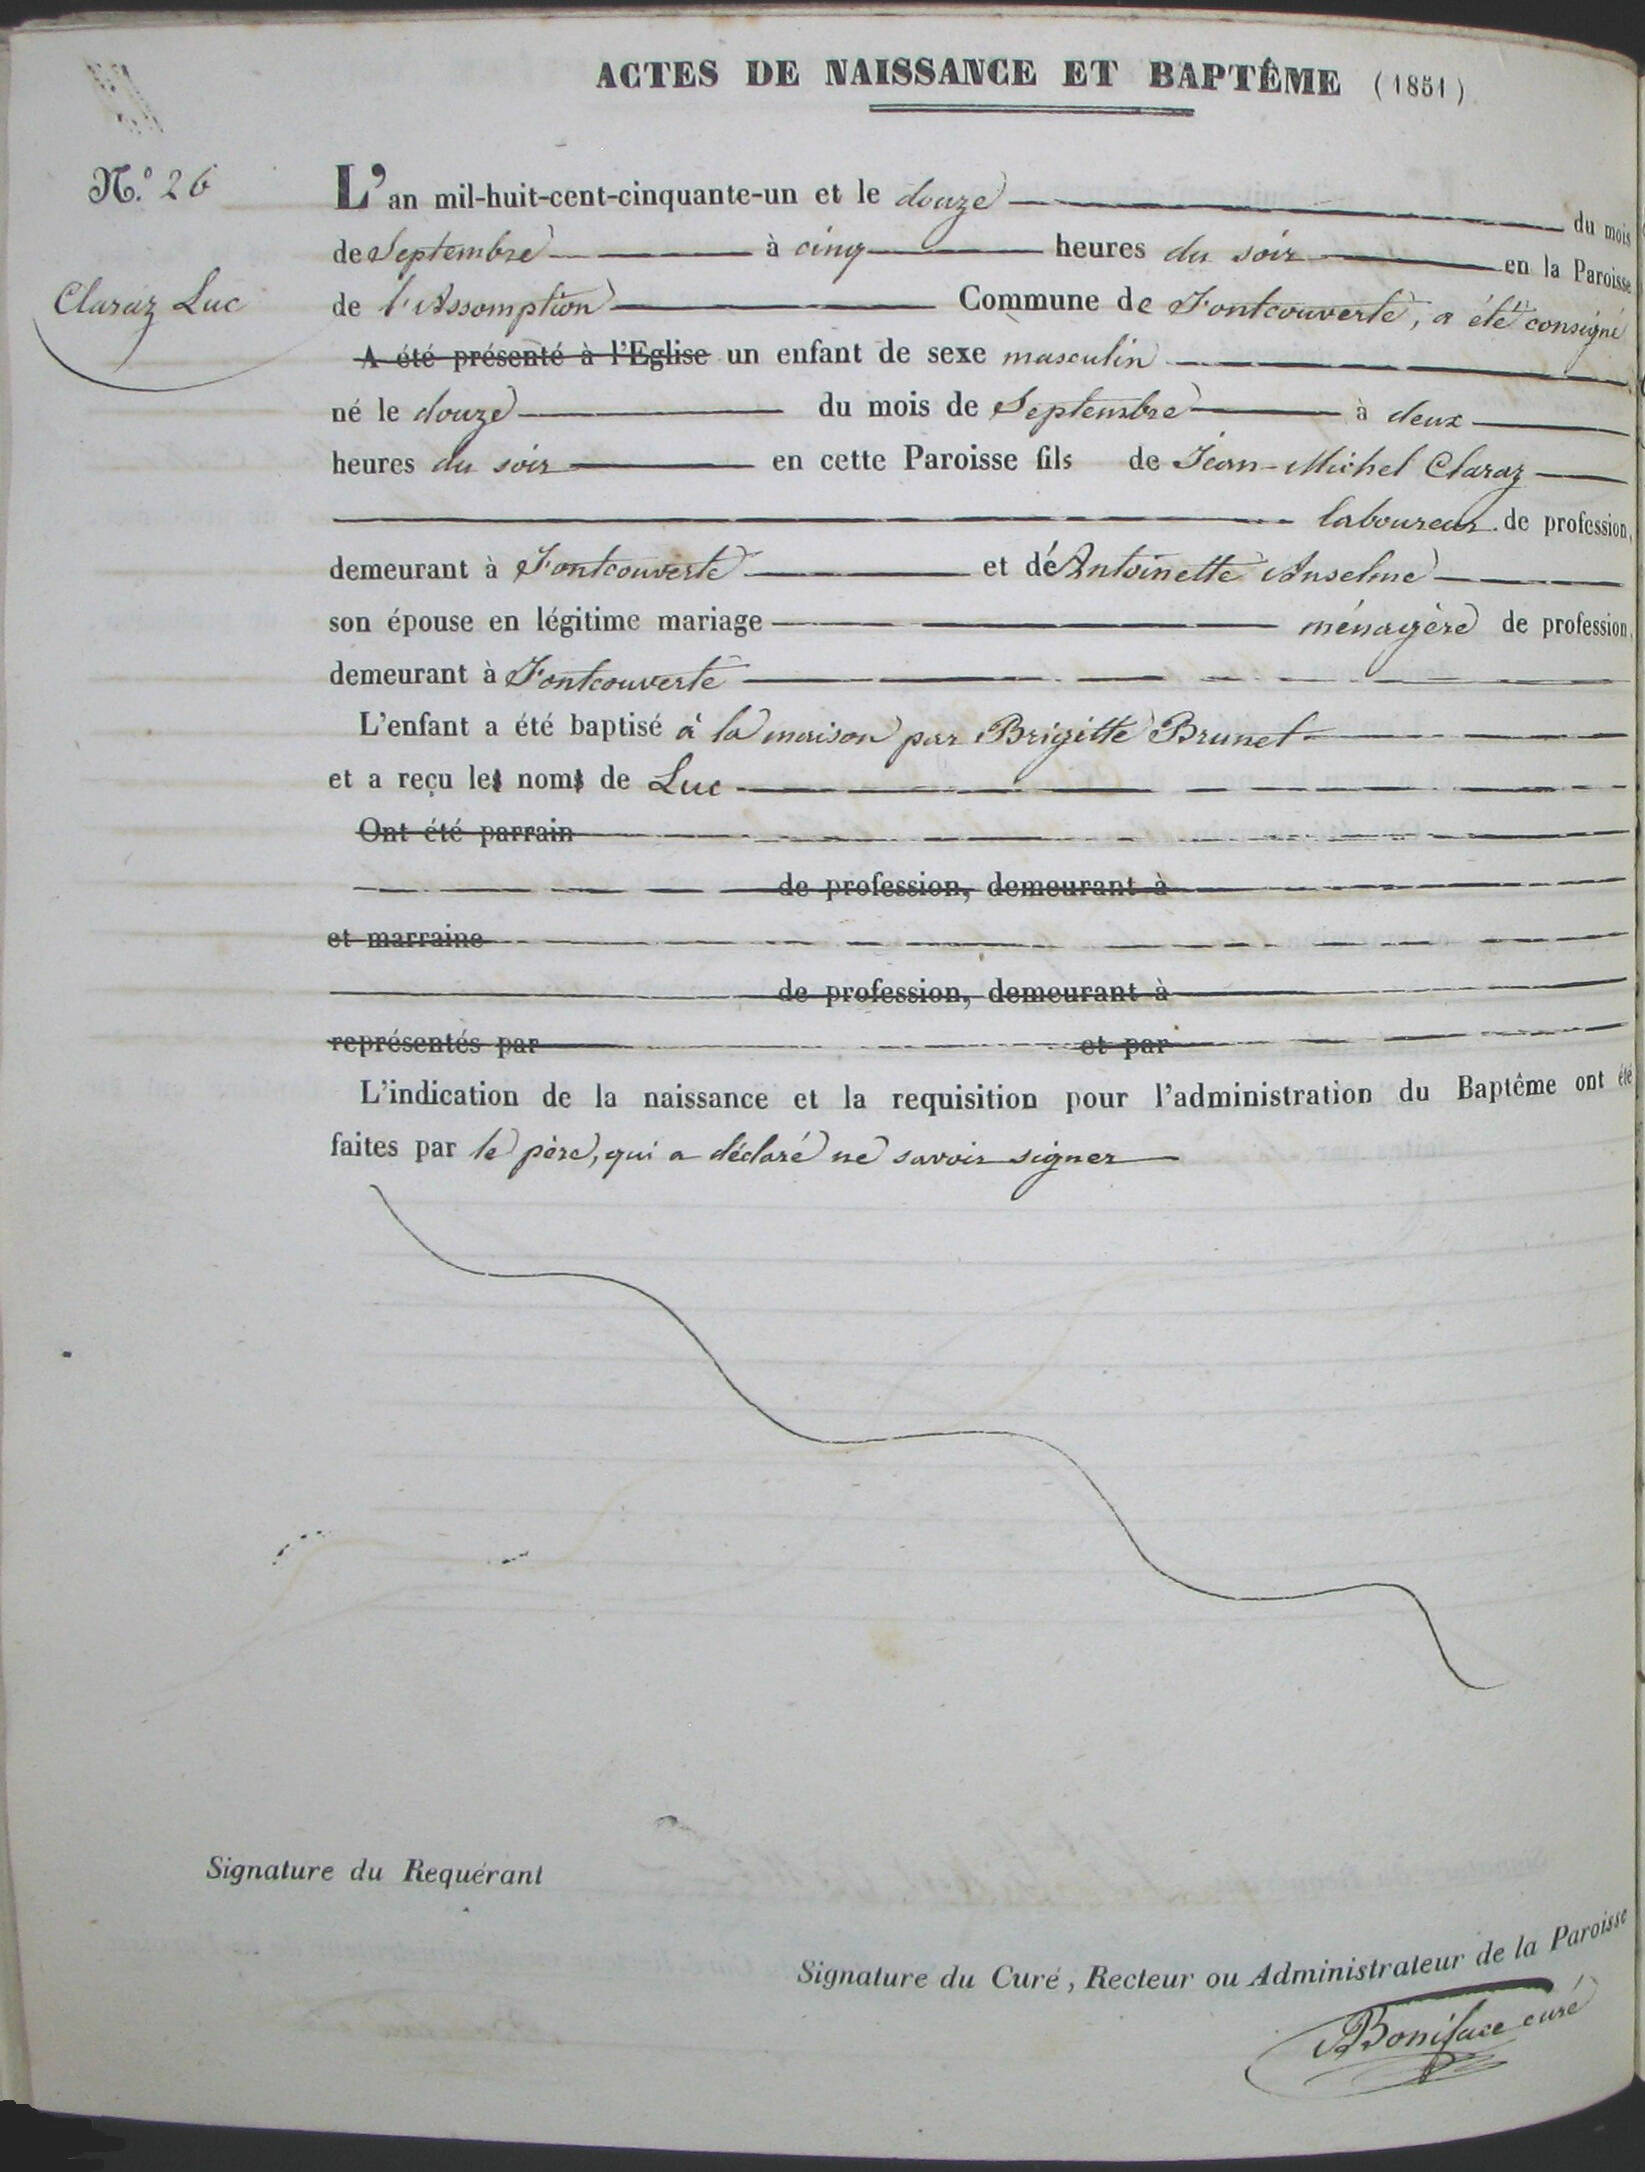 ACTES DE NAISSANCE ET BAPTÊME (1851)
N.º 26
Claraz Luc
L'an mil-huit-cent-cinquante-un et le douze du mois
de Septembre à cinq heures du soir en la Paroisse
de l'Assomption Commune de Fontcouverte, a été consigné
A été présenté à l'Eglise un enfant de sexe masculin
né le douze du mois de Septembre à deux
heures du soir en cette Paroisse fils de Jean-Michel Claraz
laboureur de profession,
demeurant à Fontcouverte et d'Antoinette Anselme
son épouse en légitime mariage ménagère de profession,
demeurant à Fontcouverte
L'enfant a été baptisé à la maison par Brigitte Brunet
et a reçu les noms de Luc
Ont été parrain
de profession, demeurant à
et marraine
de profession, demeurant à
représentés par et par
L'indication de la naissance et la requisition pour l'administration du Baptême ont été
faites par le père, qui a déclaré ne savoir signer
Signature du Requérant
Signature du Curé, Recteur ou Administrateur de la Paroisse
Boniface curé